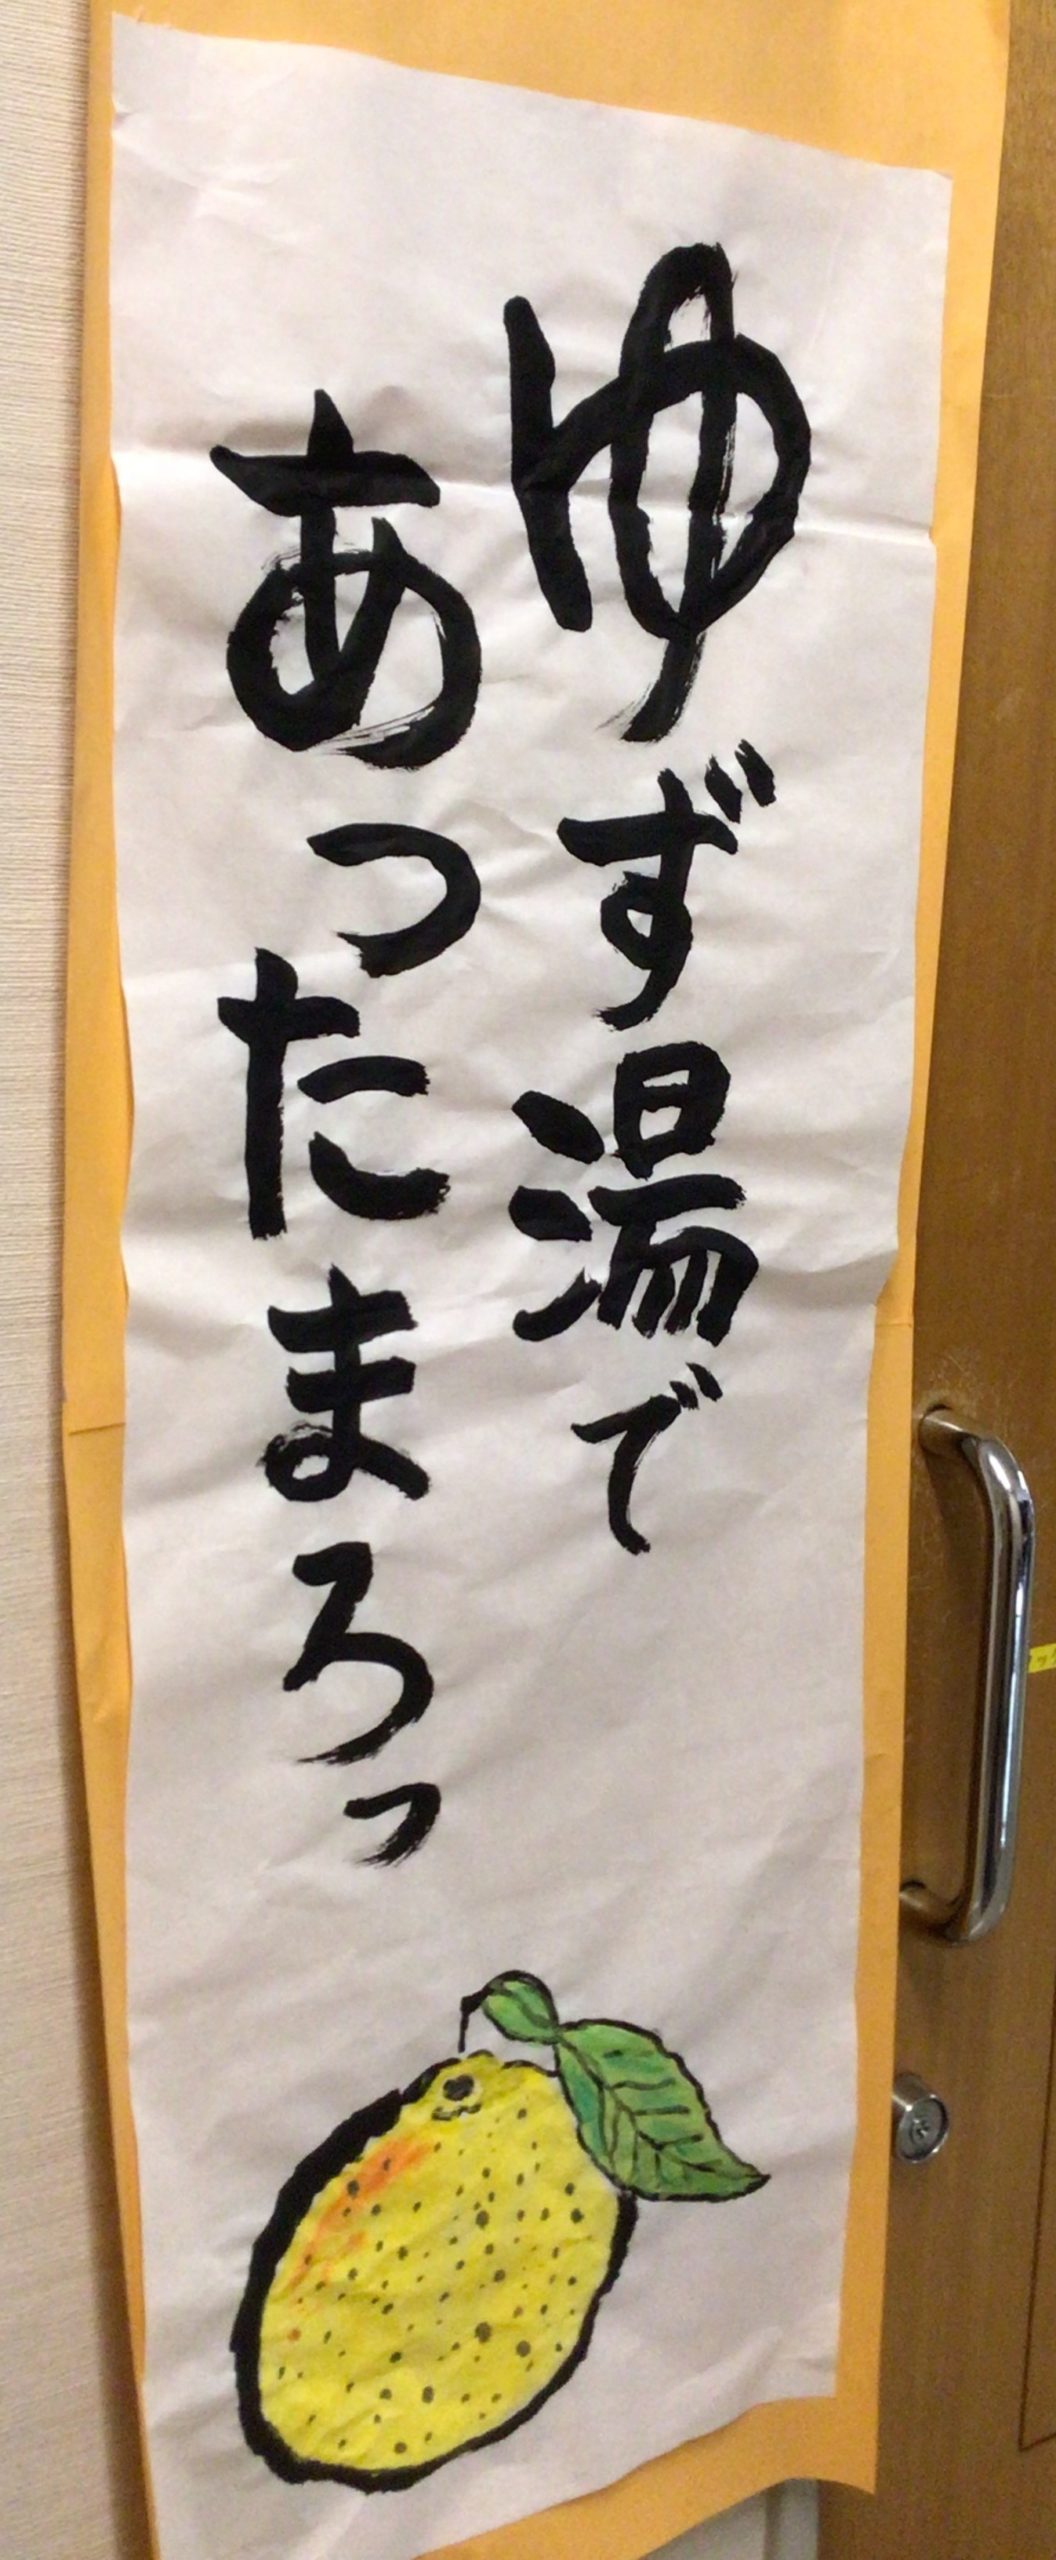 ゆず湯で
あったまろっ